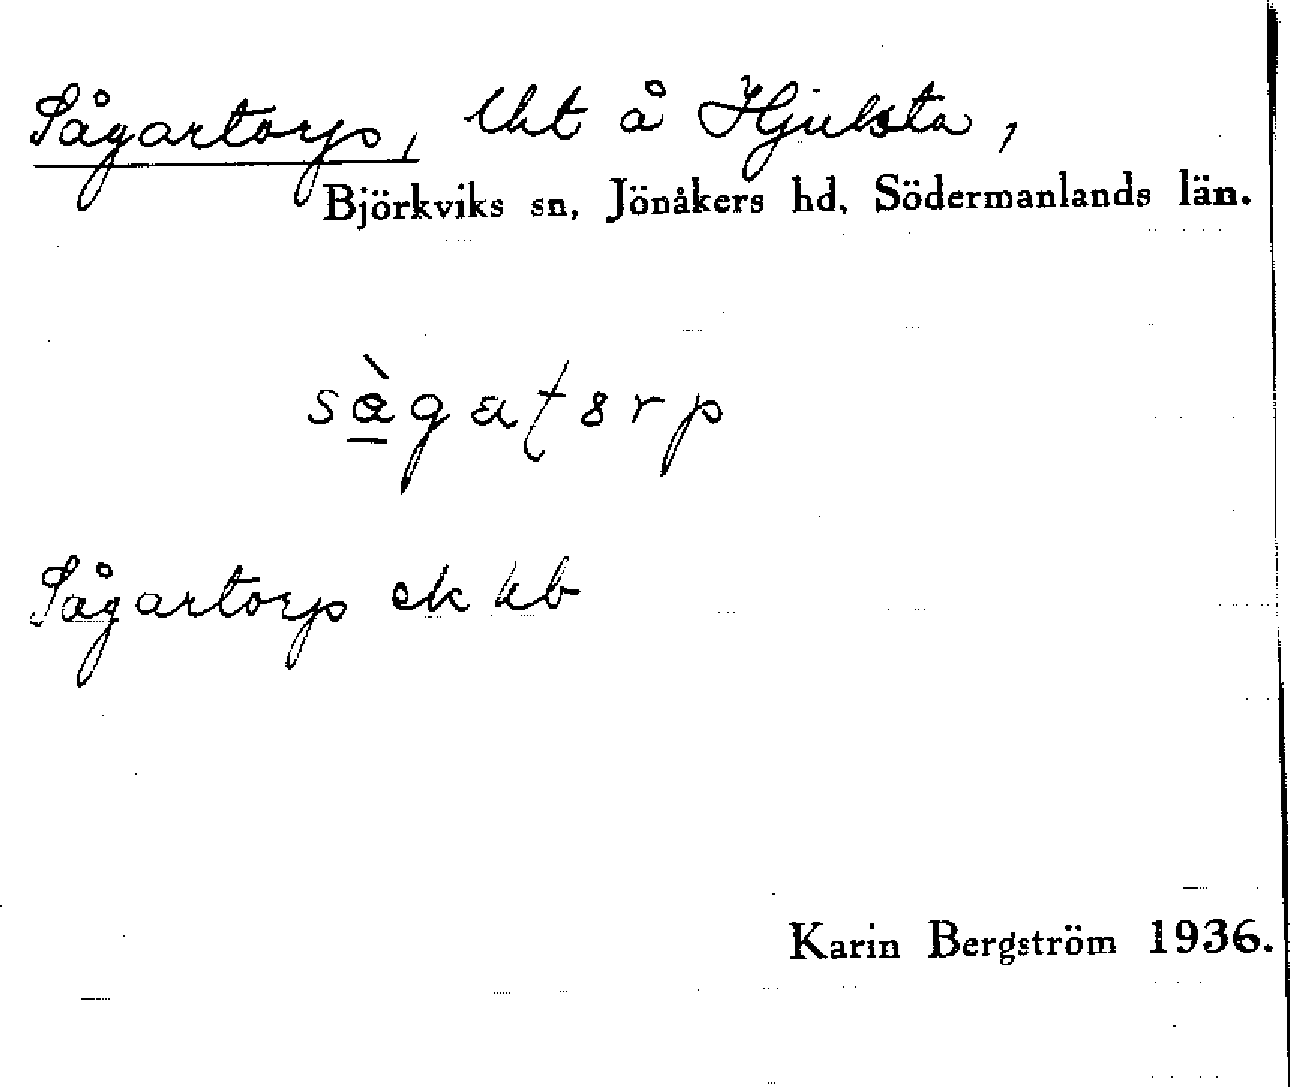 Sågartorp, lht å Hjulsta,
Björkviks sn, Jönåkers hd, Södermanlands län.
Sågartorp ek kb
Karin Bergström 1936.